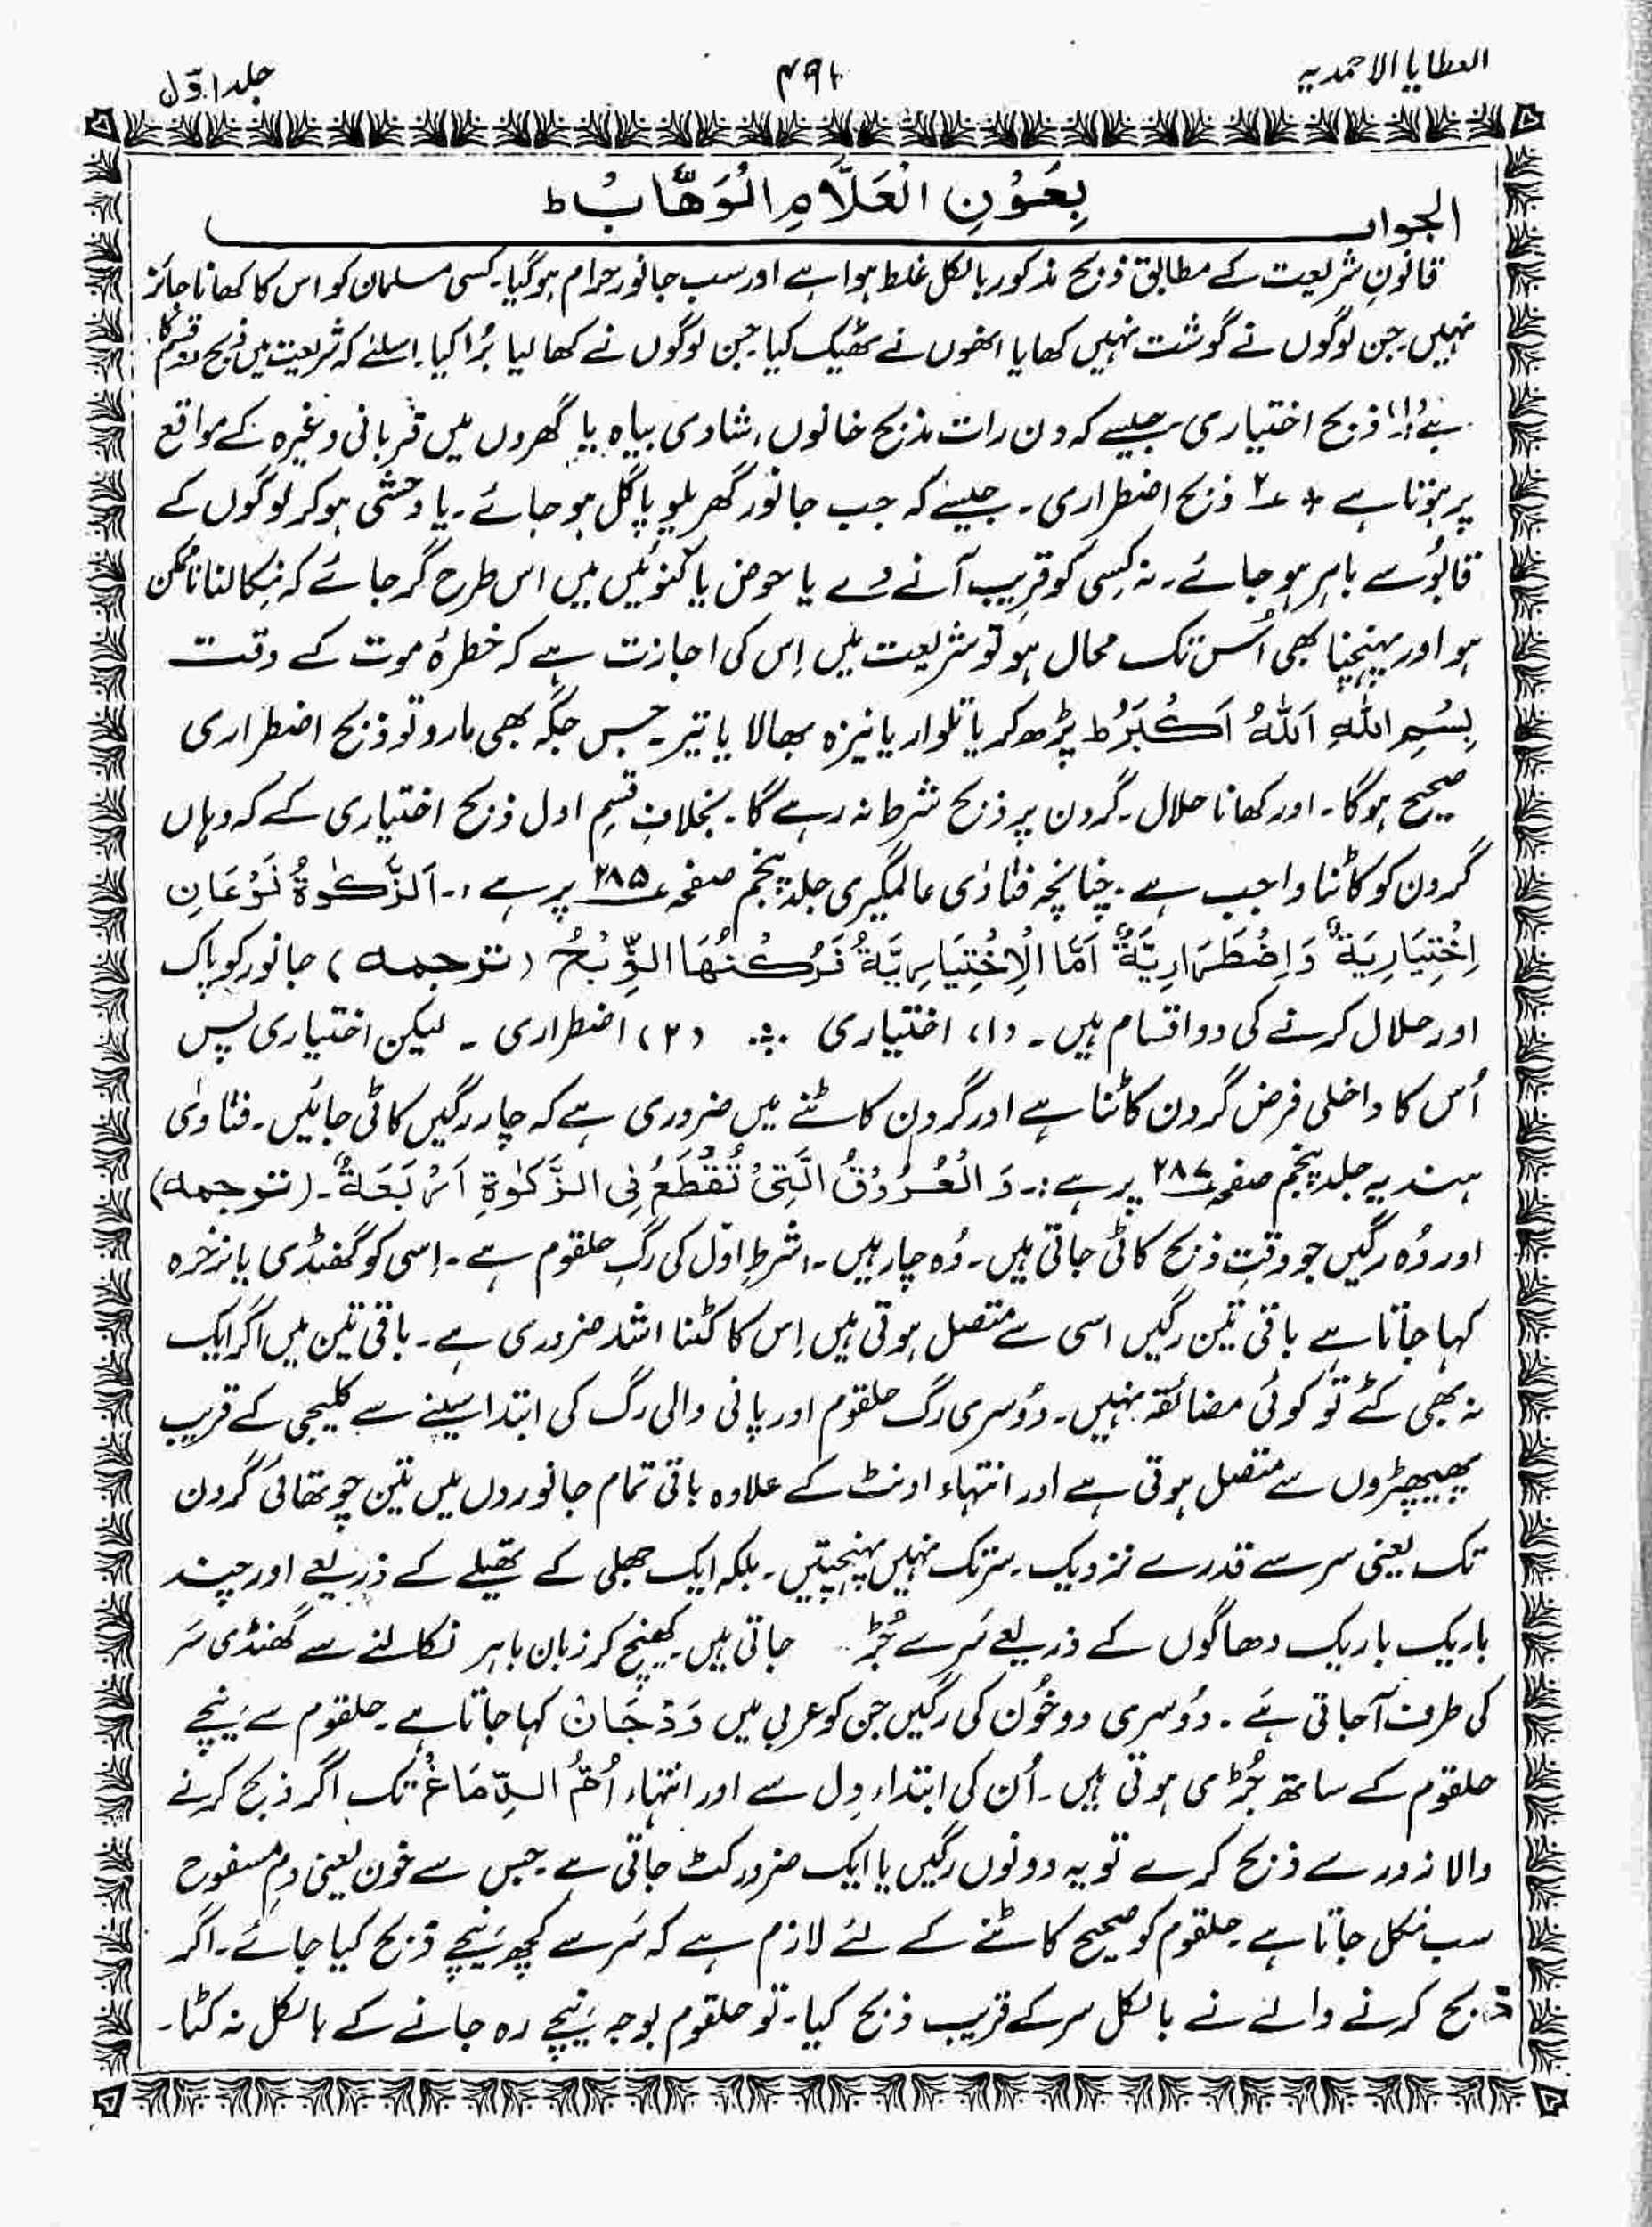 العطایا الاحمدیہ
۴۹۲
جلد اوّل
الجواب
بِعَوْنِ الْعَلَّامِ الْوَهَّابْ ط
قانونِ شریعت کے مطابق ذبح مذکور بالکل غلط ہوا ہے اور سب جانور حرام ہوگیا۔ کسی مسلمان کو اس کا کھانا جائز
نہیں۔ جن لوگوں نے گوشت نہیں کھایا انھوں نے ٹھیک کیا جن لوگوں نے کھا لیا بُرا کیا۔ اسلئے کہ شریعت میں ذبح دو قسم کا
ہے (۱) ذبح اختیاری جیسے کہ دن رات مذبح خانوں، شادی بیاہ یا گھروں میں قربانی وغیرہ کے مواقع
پر ہوتا ہے * ۲ ذبح اضطراری۔ جیسے کہ جب جانور گھریلو پاگل ہو جائے۔ یا وحشی ہوکر لوگوں کے
قابُو سے باہر ہو جائے۔ نہ کِسی کو قریب آنے دے یا حوض یا کنوئیں میں اس طرح گر جائے کہ نِکالنا ناممکن
ہو اور پہنچنا بھی اُس تک محال ہو تو شریعت میں اِس کی اجازت ہے کہ خطرۂ موت کے وقت
بِسْمِ اللّٰهِ اَللّٰهُ اَكْبَرُ ط پڑھ کر یا تلوار یا نیزہ بھالا یا تیر۔ جس جگہ بھی مارو تو ذبح اضطراری
صحیح ہوگا۔ اور کھانا حلال۔ گردن پر ذبح شرط نہ رہے گا۔ بخلافِ قسمِ اول ذبح اختیاری کے کہ وہاں
گردن کو کاٹنا واجب ہے۔ چنانچہ فتاوٰی عالمگیری جلد پنجم صفحہ ۲۸۵ پر ہے :۔ اَلذَّكٰوةُ نَوْعَانِ
اِخْتِيَارِيَةٌ وَاِضْطَرَارِيَّةٌ اَمَّا الْاِخْتِيَارِيَّةُ فَرُكْنُهَا الذِّبْحُ (ترجمہ) جانور کو پاک
اور حلال کرنے کی دو اقسام ہیں۔ (۱) اختیاری (۲) اضطراری ۔ لیکن اختیاری پس
اُس کا داخلی فرض گردن کاٹنا ہے اور گردن کاٹنے میں ضروری ہے کہ چار رگیں کاٹی جائیں۔ فتاوٰی
ہندیہ جلد پنجم صفحہ ۲۸۷ پر ہے :۔ وَالْعُرُوْقُ الَّتِيْ تُقْطَعُ فِی الذَّكٰوةِ اَرْبَعَةٌ۔ (ترجمہ)
اور وُہ رگیں جو وقتِ ذبح کاٹی جاتی ہیں۔ وُہ چار ہیں۔ شرطِ اوّل کی رگِ حلقوم ہے۔ اِسی کو گھنڈی یا نرخرہ
کہا جاتا ہے باقی تین رگیں اسی سے متصل ہوتی ہیں اِس کا کٹنا اشد ضروری ہے۔ باقی تین میں اگر ایک
نہ بھی کٹے تو کوئی مضائقہ نہیں۔ دُوسری رگ حلقوم اور پانی والی رگ کی ابتدا سینے سے کلیجی کے قریب
پھیپھڑوں سے متصل ہوتی ہے اور انتہاء اونٹ کے علاوہ باقی تمام جانوروں میں تین چوتھائی گردن
تک یعنی سر سے قدرے نزدیک۔ سر تک نہیں پہنچتیں۔ بلکہ ایک جھلی کے تھیلے کے ذریعے اور چند
باریک باریک دھاگوں کے ذریعے سَر سے جُڑ جاتی ہیں۔ کھینچ کر زبان باہر نکالنے سے گھنڈی سَر
کی طرف آجاتی ہَے۔ دُوسری دو خُون کی رگیں جن کو عربی میں وَدْجَانْ کہا جاتا ہے۔ حلقوم سے نیچے
حلقوم کے ساتھ جُڑی ہوتی ہیں۔ اُن کی ابتداء دِل سے اور انتہاء اُمُّ الدِّمَاغْ تک۔ اگر ذبح کرنے
والا زور سے ذبح کرے تو یہ دونوں رگیں یا ایک ضرور کٹ جاتی ہے۔ جس سے خون یعنی دمِ مسفوح
سب نکل جاتا ہے۔ حلقوم کو صحیح کاٹنے کے لئے لازم ہے کہ سَر سے کچھ نیچے ذبح کیا جائے۔ اگر
ذبح کرنے والے نے بالکل سر کے قریب ذبح کیا۔ تو حلقوم بوجہ نیچے رہ جانے کے بالکل نہ کٹا۔